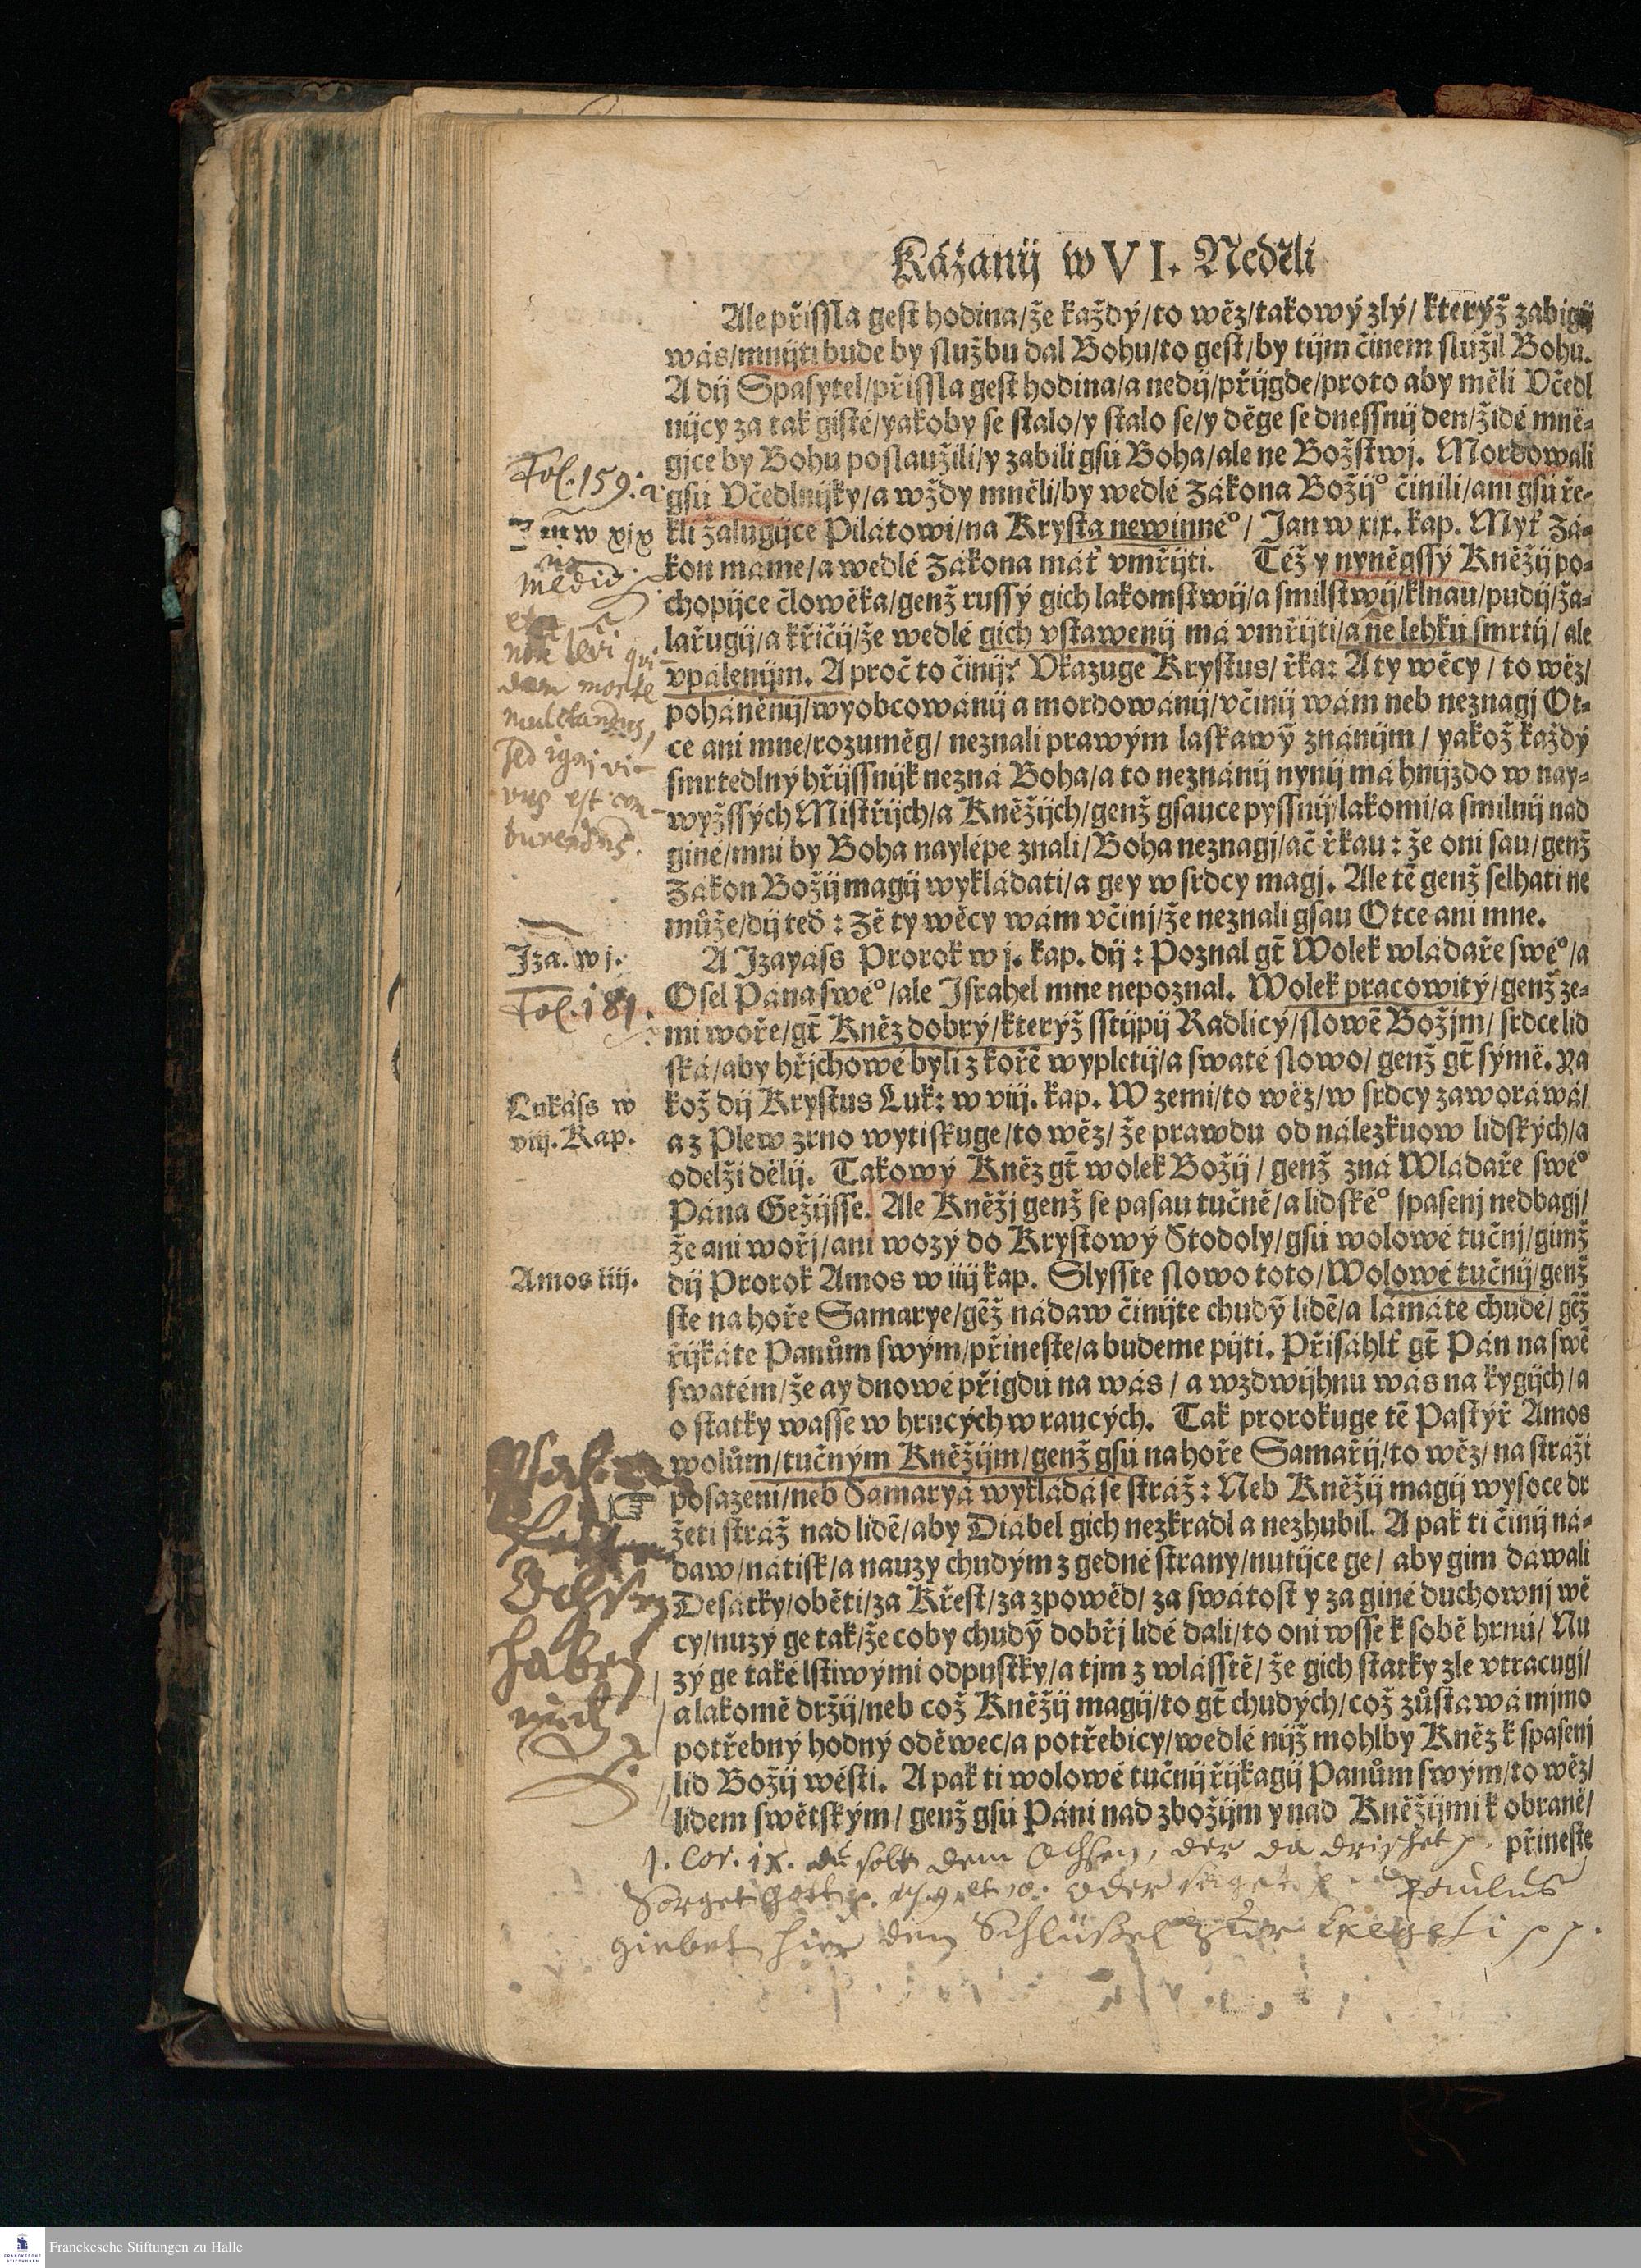 Kázanij w VI. Neděli
Ale přissla gest hodina/že každý/to wěz/takowý zlý/kterýž zabigij
wás/mnijti bude by službu dal Bohu/to gest/by tijm činem slaužil Bohu.
A dij Spasytel/přissla gest hodina/a nedij/přijgde/proto aby měli Včedl
nijcy za tak gisté/yakoby se stalo/y stalo se/y děge se dnessnij den/židé mně-
gjce by Bohu poslaužili/y zabili gsú Boha/ale ne Božstwj. Mordowali
Fol. 159.
gsú Včedlnijky/a wždy mněli/by wedlé Zákona Božij° činili/ani gsú ře-
Jan w xix
kli žalugijce Pilátowi/na Krysta newinné°/ Jan w xix. kap. Myť Zá-
kon máme/a wedlé Zákona máť vmřijti. Též y nyněgssý Kněžij po-
chopijce člowěka/genž russý gich lakomstwij/a smilstwij/klnau/pudij/ža-
non levi
lařugij/a křičij/že wedlé gich vstawenij má vmřijti/a ñe lehkú smrtij/ ale
morte
vpálenijm. A proč to činij? Vkazuge Krystus/ řka: A ty wěcy / to wěz/
mulctandus,
poháněnij/wyobcowánij a mordowánij/včinij wám neb neznagj Ot-
sed igni vi-
ce ani mne/rozuměg/ neznali prawým laskawỹ známijm/ yakož každý
vus est com-
smrtedlný hřijssnijk nezná Boha/a to neznánij nynij má hnijzdo w nay-
burendus.
wyžssých Mistřijch/a Kněžijch/genž gsauce pyssnij/lakomi/a smilnij nad
giné/mni by Boha naylépe znali/Boha neznagj/ač řkau: že oni sau/genž
Zákon Božij magij wykládati/a gey w srdcy magj. Ale tẽ genž selhati ne
může/dij teď: Zě ty wěcy wám včinj/že neznali gsau Otce ani mne.
Jza. w j.
A Jzayáss Prorok w j. kap. dij: Poznal gt̃ Wolek wládaře swé°/a
Fol. 181.
Osel Pána swé°/ale Jsrahel mne nepoznal. Wolek pracowitý/genž ze-
mi woře/gt̃ Kněz dobrý/kterýž sstijpij Radlicý/slowẽ Božjm/ srdce lid
ská/aby hřjchowé byli z kořẽ wypletij/a swaté slowo/ genž gt̃ sýmě. Ya
Lukáss w
viij. Kap.
kož dij Krystus Luk: w viij. kap. W zemi/to wěz/w srdcy zaworáwá/
a z Plew zrno wytiskuge/to wěz/ že prawdu od nálezkuow lidských/a
odelži dělij. Takowý Kněz gt̃ wolek Božij/ genž zná Wládaře swé°
Pána Gežijsse. Ale Kněžj genž se pasau tučně/a lidské° spasenj nedbagj/
že ani wořj/ani wozý do Krystowý Stodoly/gsú wolowé tučnj/gimž
Amos iiij.
dij Prorok Amos w iiij kap. Slysste slowo toto/Wolowé tučnij/genž
ste na hoře Samarye/gẽž nádaw činijte chudỹ lidẽ/a lámáte chudé/ gẽž
řijkáte Panům swým/přineste/a budeme pijti. Přisáhlť gt̃ Pán na swẽ
swatém/že ay dnowé přigdú na wás / a wzdwijhnu wás na kygijch/a
o statky wasse w hrncých wraucých. Tak prorokuge tẽ Pastýř Amos
wolům/tučným Kněžijm/genž gsú na hoře Samařij/to wěz/ na stráži
posazeni/neb Samarya wykládá se stráž: Neb Kněžij magij wysoce dr
žeti stráž nad lidẽ/aby Diábel gich nezkradl a nezhubil. A pak ti činij ná-
daw/nátisk/a nauzy chudým z gedné strany/nutijce ge/ aby gim dáwali
Desátky/oběti/za Křest/za zpowěd/ za swátost y za giné duchownj wě
cy/nuzý ge tak/že coby chudỹ dobřj lidé dali/to oni wsse k sobě hrnú/ Nu
haben
zý ge také lstiwými odpustky/a tjm z wlásstě/ že gich statky zle vtracugj/
mich
a lakomě držij/neb což Kněžij magij/to gt̃ chudých/což zůstawá mjmo
potřebný hodný oděwec/a potřebicy/wedlé nijž mohlby Kněz k spasenj
lid Božij wésti. A pak ti wolowé tučnij řijkagij Panům swým/to wěz/
lidem swětským/ genž gsú Páni nad zbožijm y nad Kněžijmi k obraně/
přineste
1. Cor. IX. du solt dem Ochsen, der da drischet
Sorget Gott v. 9. et 10. oder Paulus
giebet hier den Schlüßel zur Exegesi
Franckesche Stiftungen zu Halle